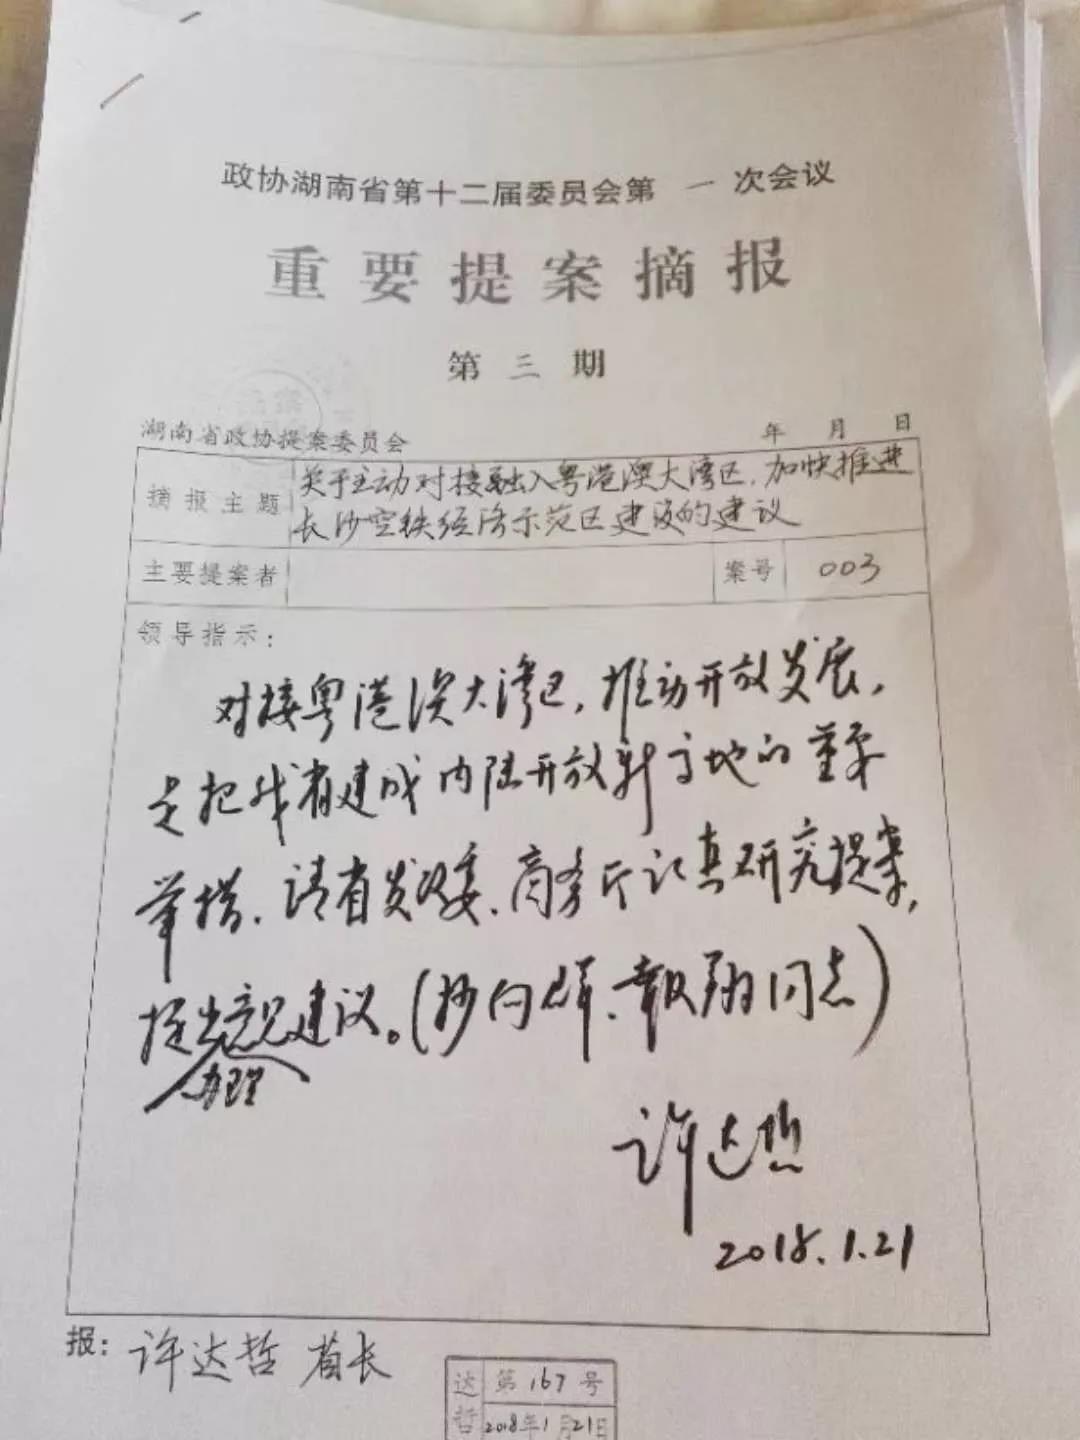 政协湖南省第十二届委员会第 一 次会议
重要提案摘报
第 三 期
湖南省政协提案委员会 年 月 日
摘报主题 关于主动对接融入粤港澳大湾区,加快推进
长沙空铁经济示范区建设的建议
主要提案者 案号 003
领导指示:
对接粤港澳大湾区,推动开放发展,
是把我省建成内陆开放新高地的重要
举措。请省发改委、商务厅认真研究提案,
提出办理意见建议。(抄向群、报翔同志)
许达哲
2018.1.21
报: 许达哲 省长
达哲 第 167 号
2018年1月21日